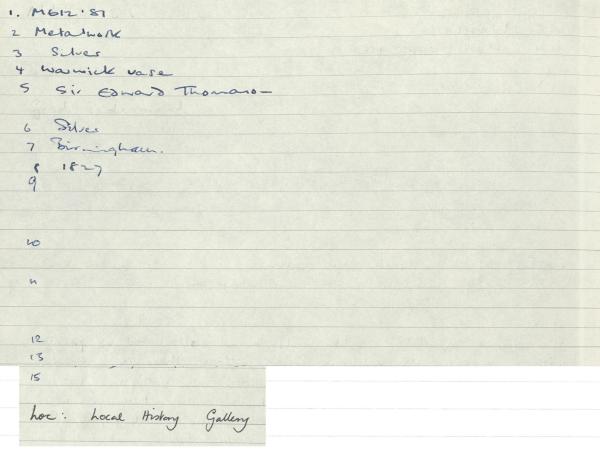 1. M612'81
2 Metalwork
3 Silver
4 Warwick vase
5 Sir Edward Thomason
6 Silver
7 Birmingham.
8 1827
9
10
11
12
13
15
Loc: Local History Gallery